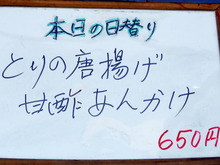 本日の日替り
とりの唐揚げ
甘酢あんかけ
650円